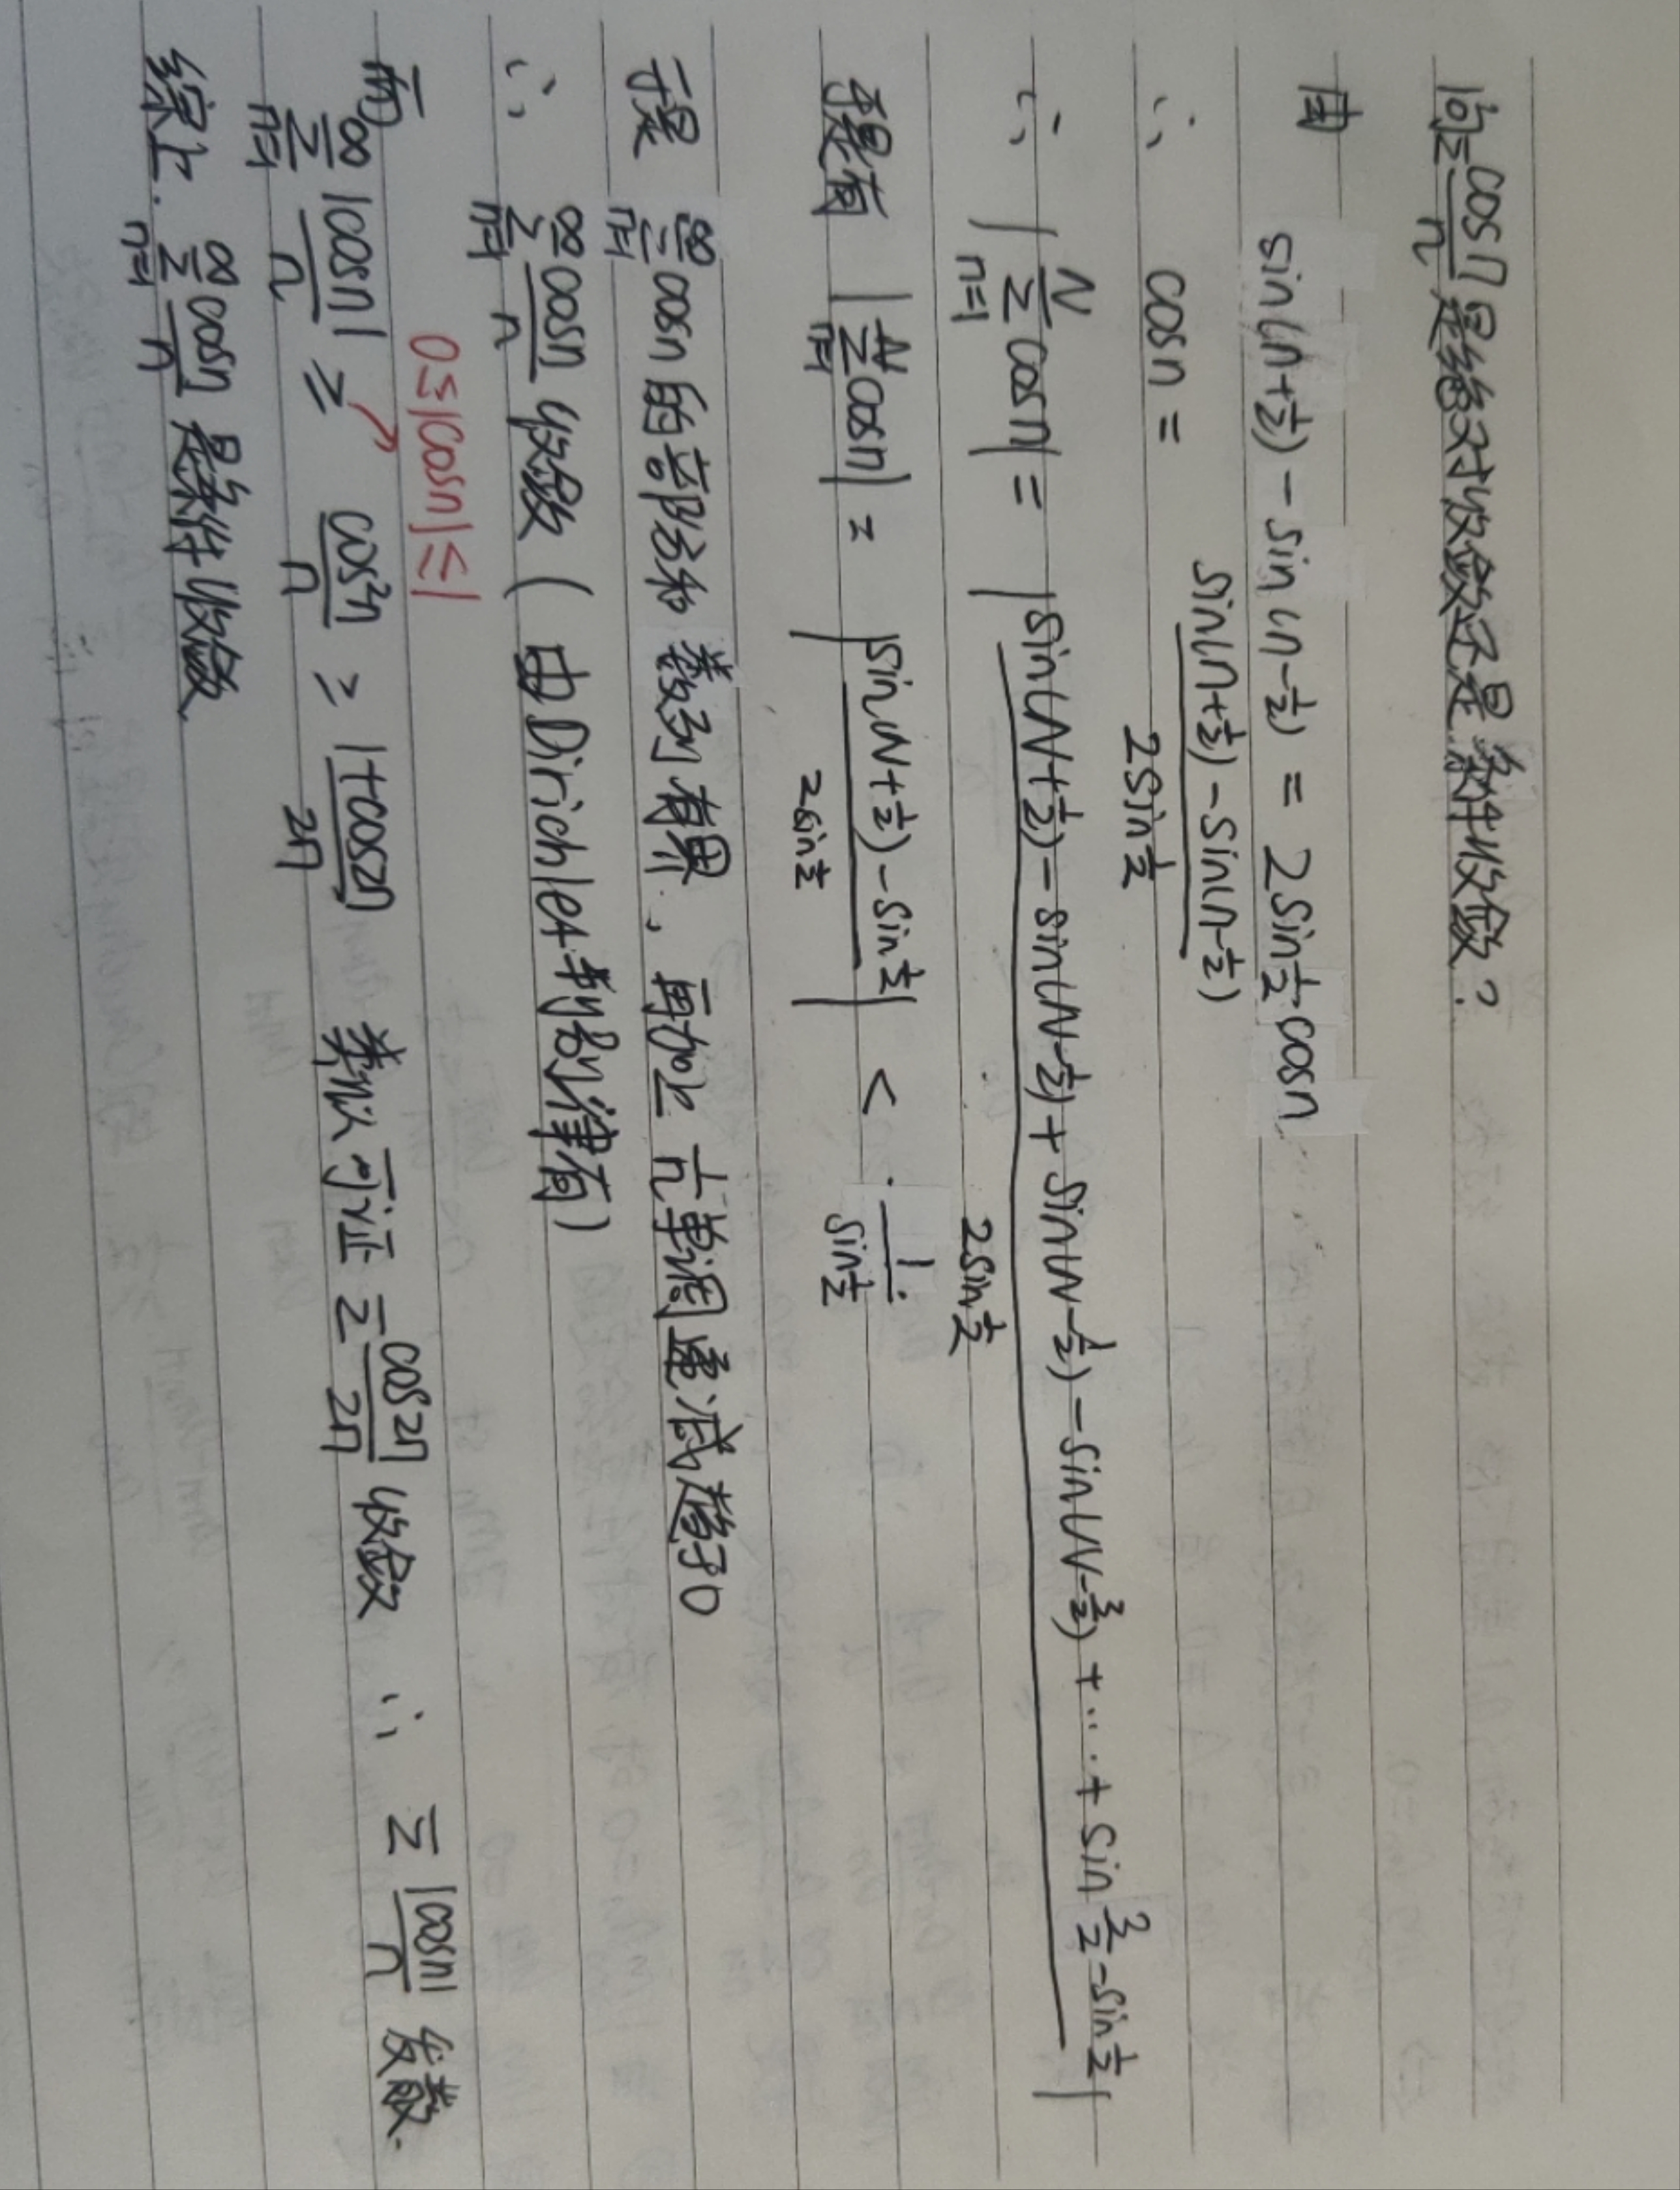 问Σcosn/n是绝对收敛还是条件收敛?
由
sin(n+1/2)-sin(n-1/2) = 2sin1/2cosn
∴ cosn = (sin(n+1/2)-sin(n-1/2))/(2sin1/2)
∴ |Σ_{n=1}^{N}cosn| = |(sin(N+1/2)-sin(N-1/2)+sin(N-1/2)-sin(N-3/2)+…+sin3/2-sin1/2)/(2sin1/2)|
于是有 |Σ_{n=1}^{N}cosn| = |(sin(N+1/2)-sin1/2)/(2sin1/2)| < 1/(sin1/2)
于是 Σ_{n=1}^{∞}cosn的部分和数列有界,再加上1/n单调递减趋于0
∴ Σ_{n=1}^{∞}cosn/n 收敛(由Dirichlet判别律有)
0≤|cosn|≤1
而Σ_{n=1}^{∞}|cosn|/n ≥ cos²n/n ≥ (1+cos2n)/(2n) 类似可证Σcos2n/(2n)收敛 ∴ Σ|cosn|/n 发散.
综上.Σ_{n=1}^{∞}cosn/n 是条件收敛